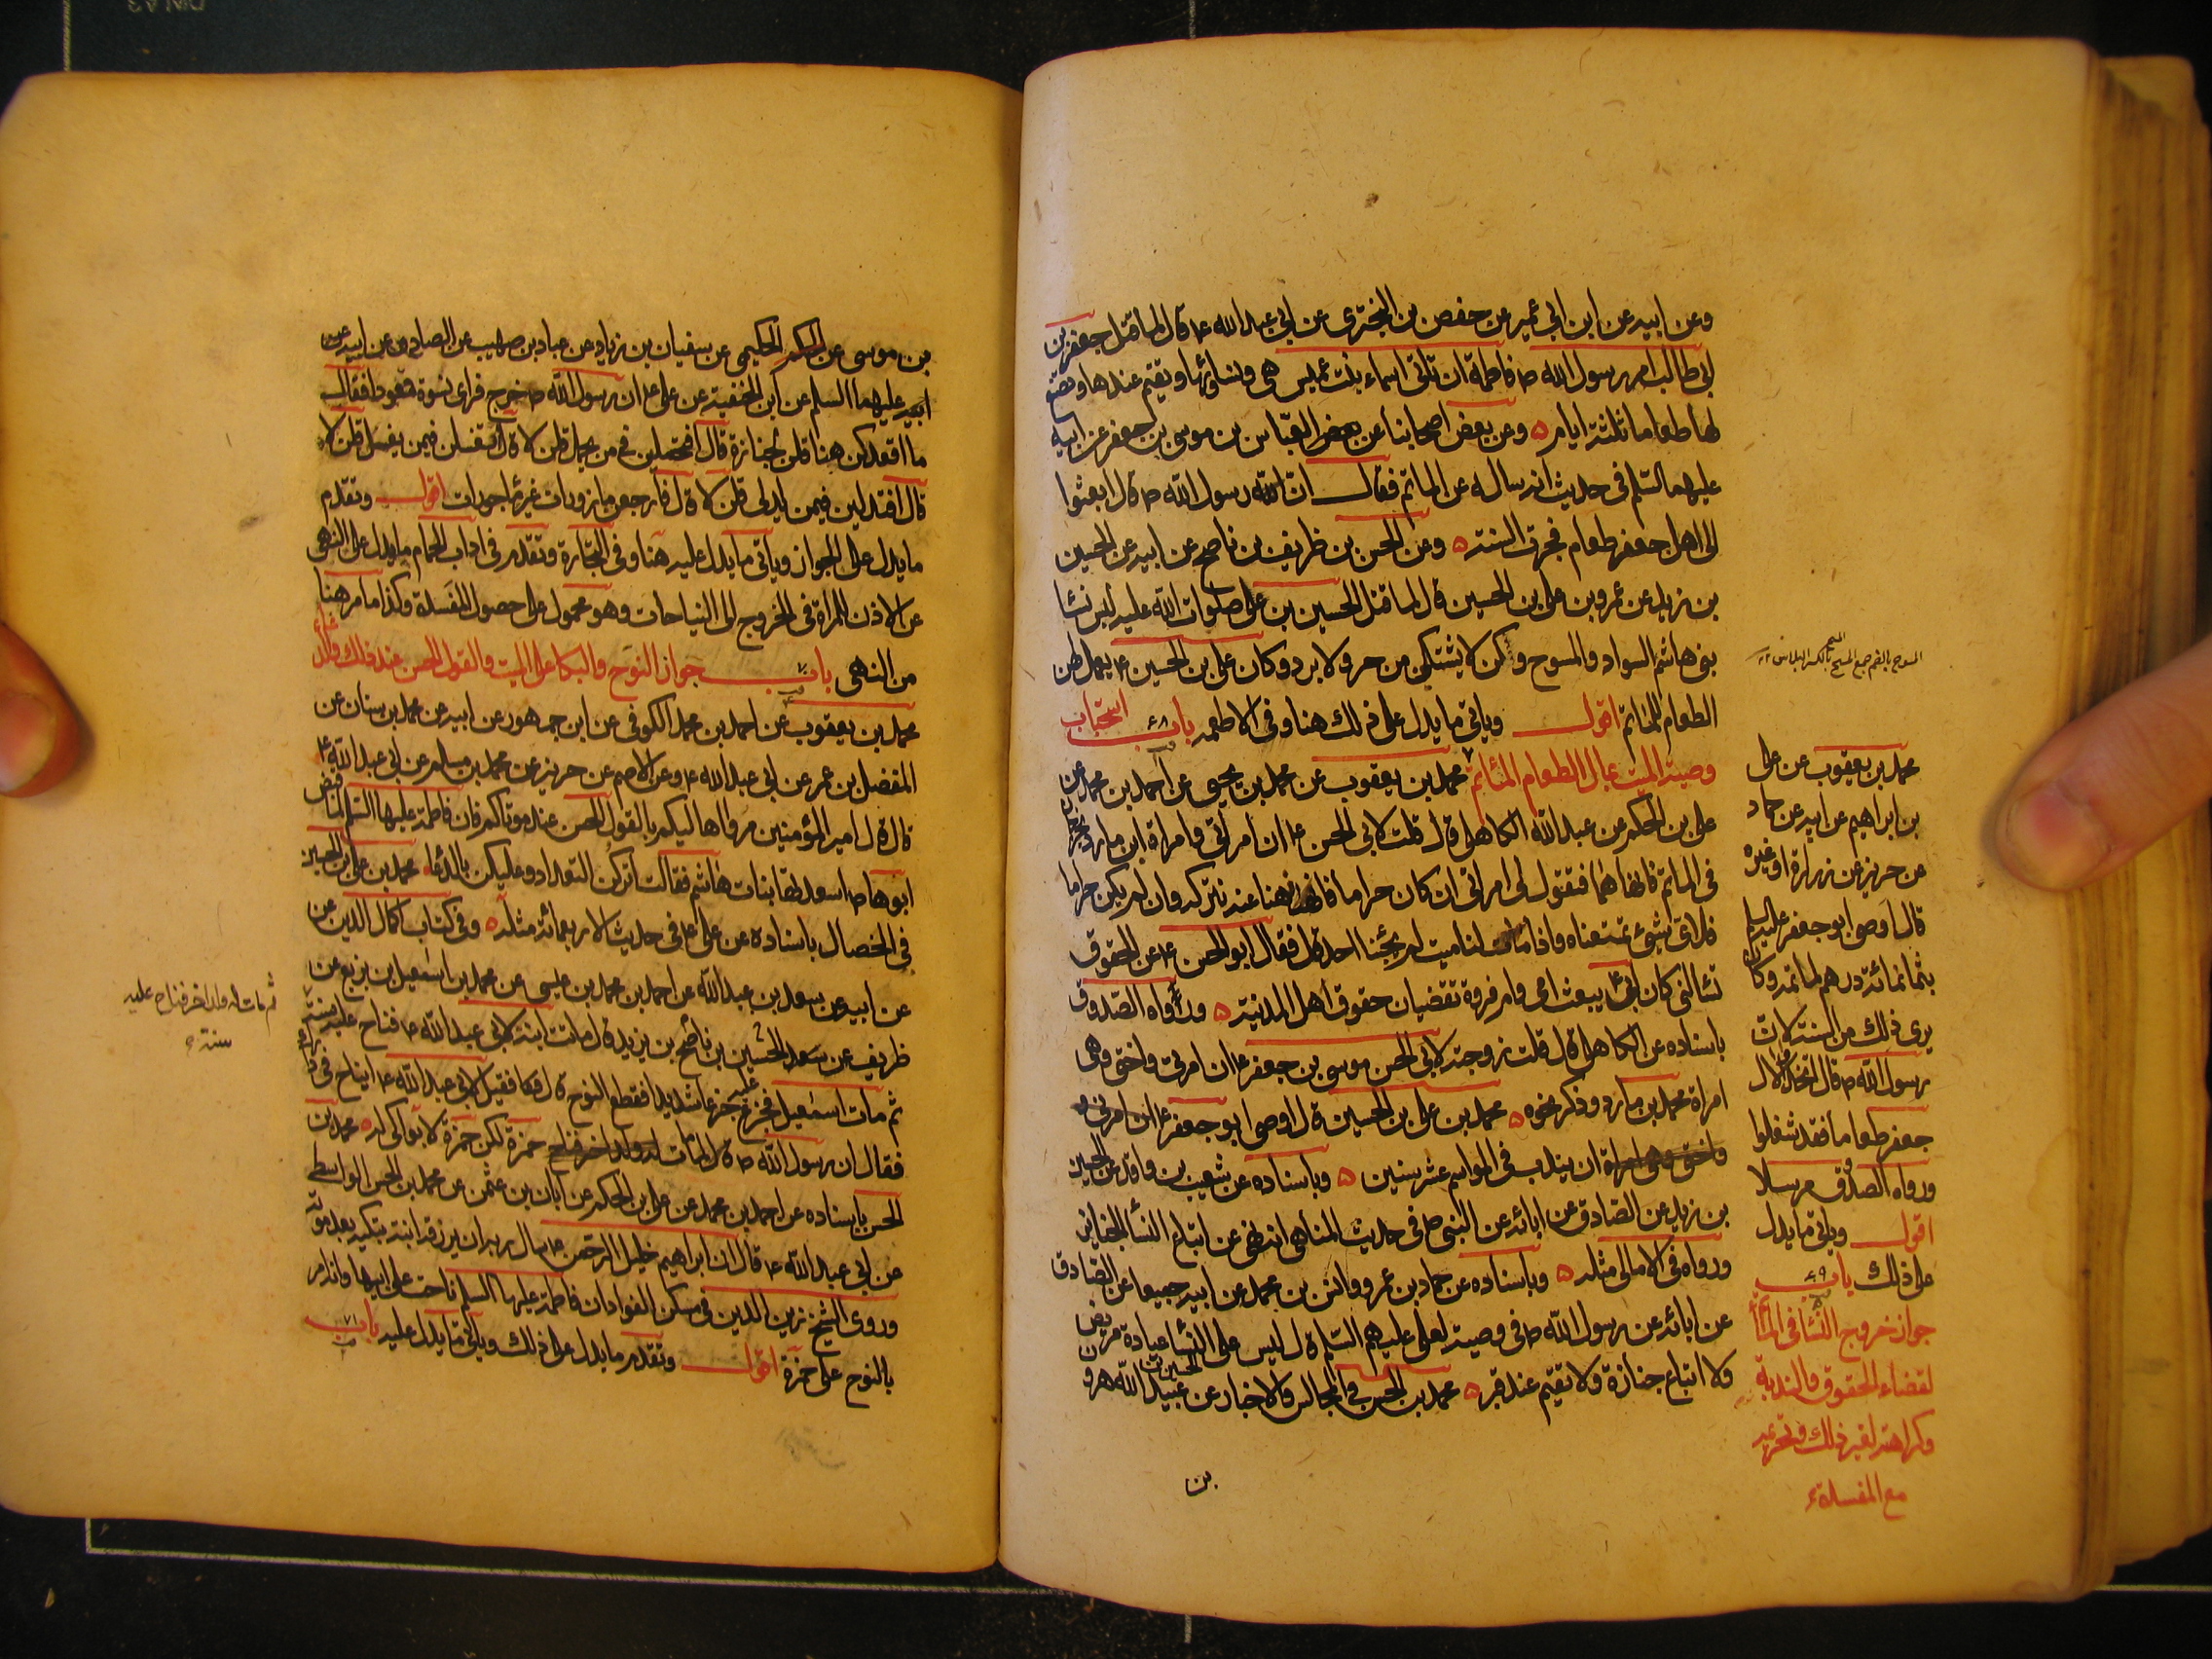 وعن ابيه عن ابن ابي عمير عن حفص بن البختري عن ابي عبد الله ع قال لما قتل جعفر بن
ابي طالب امر رسول الله ص فاطمة ان تاتي اسماء بنت عميس هي ونساؤها وتقيم عندها وتصنع
لها طعاما ثلثة ايام ه وعن بعض اصحابنا عن بعض العباس بن موسى بن جعفر عن ابيه
عليهما السلم في حديث انه ساله عن الماتم فقال ان رسول الله ص قال ابعثوا
الى اهل جعفر طعام فجرت السنة ه وعن الحسن بن ظريف بن ناصح عن ابيه عن الحسين
بن زيد عن عمرو بن علي بن الحسين قال لما قتل الحسين بن علي صلوات الله عليه لبس نسا
بني هاشم السواد والمسوح وكن لا يشتكين من حر ولا برد وكان علي بن الحسين ع يعمل لهن
الطعام للماتم اقول وياتي ما يدل على ذلك هنا وفي الاطعمه باب ۶۸ استحباب
وصية الميت بمال لطعام الماتم محمد بن يعقوب عن محمد بن يحيى عن احمد بن محمد عن
علي بن الحكم عن عبد الله الكاهلي قال قلت لابي الحسن ع ان امراتي وامراة ابن مارد تخرجان
في الماتم فانهاهما فتقول لي امراتي ان كان حراما فانهنا عنه نتركه وان لم يكن حراما
فلاي شئ تمنعناه واذا مات لنا ميت لم يجئنا احد قال فقال ابو الحسن ع عن الحقوق
تسالني كان ابي ع يبعث امي وام فروة تقضيان حقوق اهل المدينة ه ورواه الصدوق
باسناده عن الكاهلي قال قلت لابي الحسن موسى بن جعفر ع ان امرتي واختي وهي
امراة محمد بن مارد وذكر نحوه ه محمد بن علي بن الحسين قال اوصى ابو جعفر ع
ان يندب في المواسم عشر سنين ه وباسناده عن شعيب بن واقد عن الحسين
بن زيد عن الصادق عن ابائه عن النبي ص في حديث المناهي انه نهى عن اتباع النسا الجنايز
ورواه في الامالي مثله ه وباسناده عن حماد بن عمرو وانس بن محمد عن ابيه جميعا عن الصادق
عن ابائه عن رسول الله ص في وصية لعلي عليهم السلم قال ليس على النسا عيادة مريض
ولا اتباع جنازة ولا تقيم عند قبر ه محمد بن الحسن في المجالس والاخبار عن الحسين بن عبيد الله عن هرون
بن
المسوح بالضم جمع المسح بالكسر البلاس
محمد بن يعقوب عن علي
بن ابراهيم عن ابيه عن حماد
عن حريز عن زرارة او غيره
قال اوصى ابو جعفر عليه السلم
بثمانمائة درهم لماتمه وكان
يرى ذلك من السنة لان
رسول الله ص قال اتخذوا لال
جعفر طعاما فقد شغلوا
ورواه الصدوق مرسلا
اقول وياتي ما يدل
على ذلك باب ۶۹
جواز خروج النسا في الماتم
لقضاء الحقوق والندبة
وكراهته لغير ذلك وتحريمه
مع المفسدة
بن موسى عن الحكيمي عن سفيان بن زياد عن عباد بن صهيب عن الصادق عن ابيه عن
ابيه عليهما السلم عن ابن الحنفية عن علي ع ان رسول الله ص خرج فراى نسوة قعودا فقال
ما اقعدكن هنا قلن لجنازة قال افتحملن في من يحمل قلن لا قال افتغسلن فيمن يغسل قلن لا
قال افتدلين فيمن يدلي قلن لا قال فارجعن مازورات غير ماجورات اقول وتقدم
ما يدل على الجواز وياتي ما يدل عليه هنا وفي التجارة وتقدم في اداب الحمام ما يدل على النهي
عن الاذن للمراة في الخروج الى النياحات وهو محمول على حصول المفسدة وكذا ما مر هنا
من النهي باب ۷۰ جواز النوح والبكا على الميت والقول الحسن عند ذلك والدعاء
محمد بن يعقوب عن احمد بن محمد الكوفي عن ابن جمهور عن ابيه عن محمد بن سنان عن
المفضل بن عمر عن ابي عبد الله ع وعن الاصم عن حريز عن محمد بن مسلم عن ابي عبد الله ع
قال قال امير المؤمنين مروا اهاليكم بالقول الحسن عند موتاكم فان فاطمة عليها السلم لما قبض
ابوها ص اسعدتها بنات هاشم فقالت اتركن التعداد وعليكن بالدعاء محمد بن علي بن الحسين
في الخصال باسناده عن علي ع في حديث الاربعمائة مثله ه وفي كتاب اكمال الدين عن
عن ابيه عن سعد بن عبد الله عن احمد بن محمد بن عيسى عن محمد بن اسمعيل بن بزيع عن
ظريف بن ناصح عن الحسين بن يزيد قال ماتت ابنة لابي عبد الله ع فناح عليها سنة
ثم مات اسمعيل فجزع عليه جزعا شديدا فقطع النوح قال فقيل لابي عبد الله ع ايناح في دارك
فقال ان رسول الله ص قال لما مات حمزة لكن حمزة لا بواكي له ه محمد بن
الحسن باسناده عن احمد بن محمد عن علي بن الحكم عن ابان بن عثمن عن محمد بن الحسن الواسطي
عن ابي عبد الله ع قال ان ابراهيم خليل الرحمن ع سال ربه ان يرزقه ابنة تبكيه بعد موته
وروى الشيخ زين الدين في مسكن الفواد ان فاطمة عليها السلم ناحت على ابيها وانه امر
بالنوح على حمزة اقول وتقدم ما يدل على ذلك وياتي ما يدل عليه باب ۷۱
ثم مات له ولد اخر فناح عليه
سنة